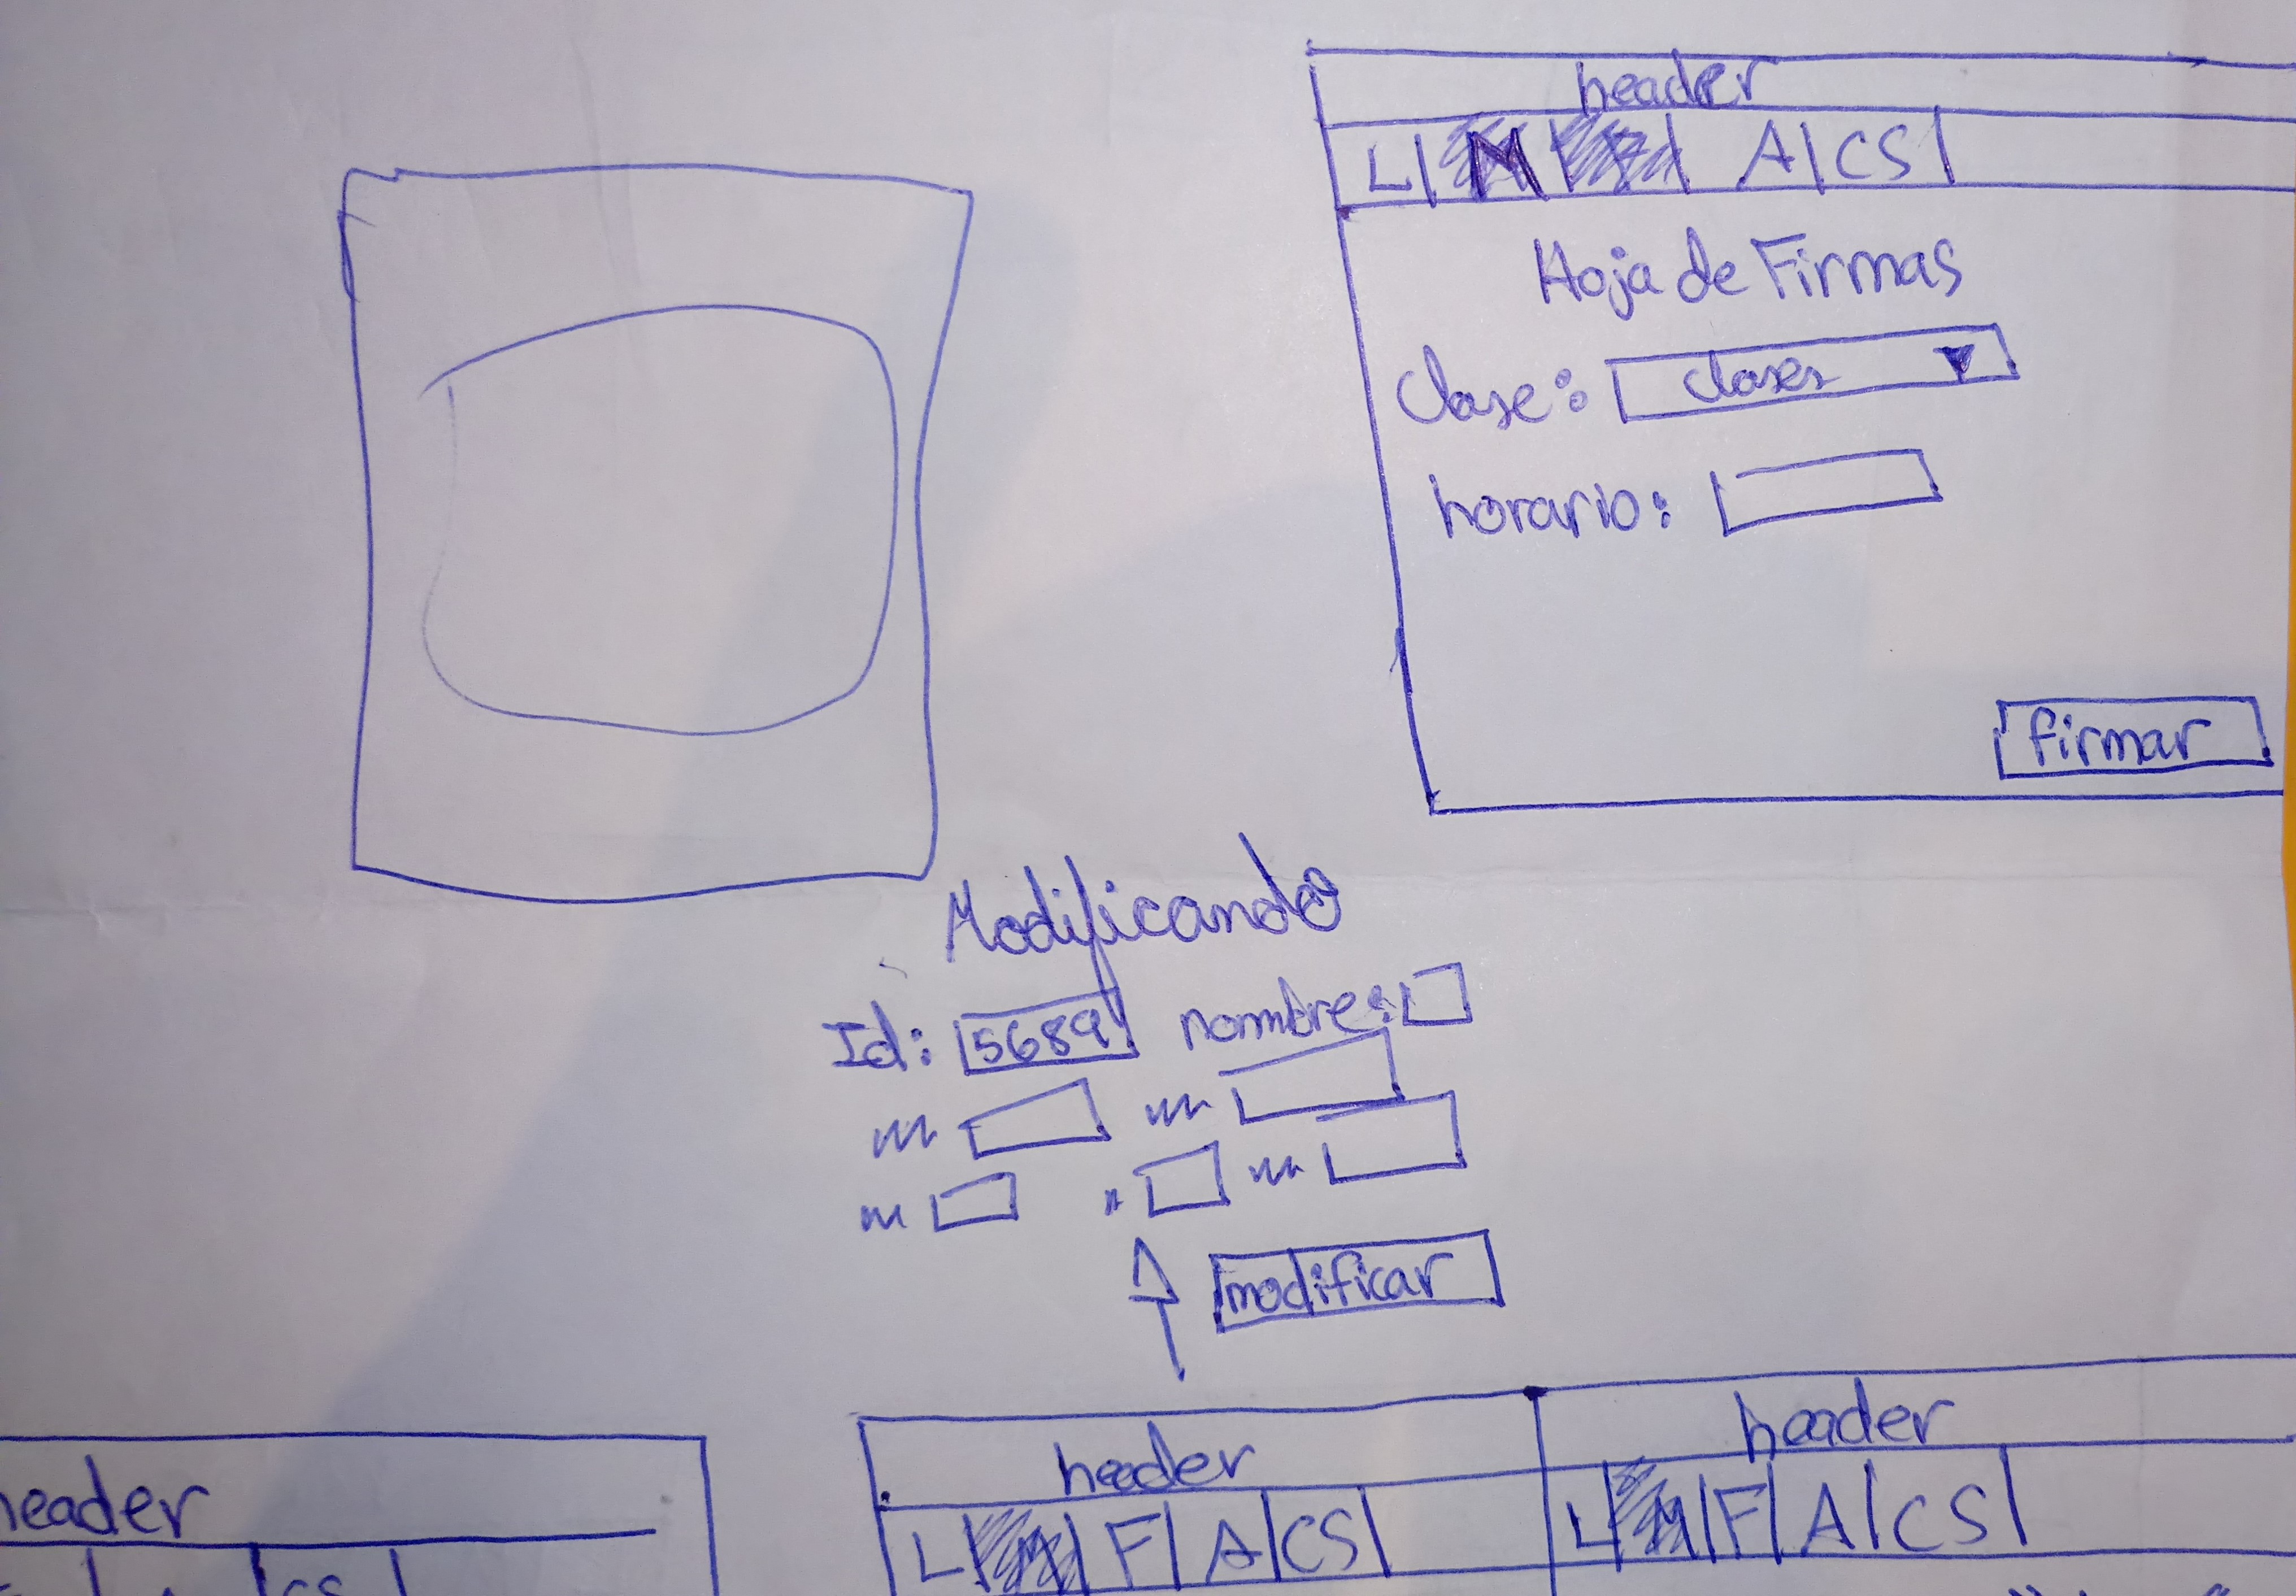 header
L M F A CS
Hoja de Firmas
Clase: clases
horario:
firmar
Modificando
Id: 5689 nombre:
modificar
header
L M F A CS
header
L M F A CS
header
CS